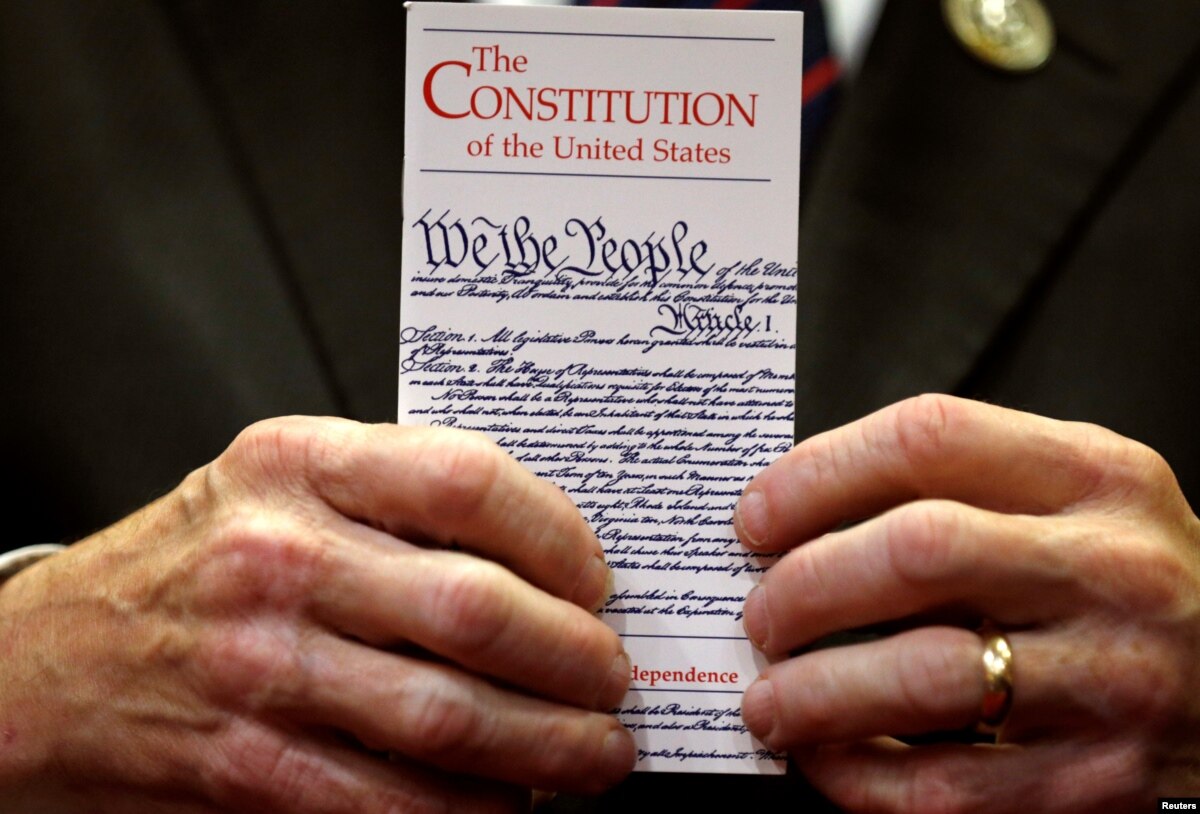 The
CONSTITUTION
of the United States
We the People of the Unit
insure domestic Tranquility, provide for the common defence, promot
and our Posterity, do ordain and establish this Constitution for the Un
Article. I.
Section. 1. All legislative Powers herein granted shall be vested in a
of Representatives.
Section. 2. The House of Representatives shall be composed of Mem
in each State shall have Qualifications requisite for Electors of the most numero
No Person shall be a Representative who shall not have attained to
and who shall not, when elected, be an Inhabitant of that State in which he sha
Representatives and direct Taxes shall be apportioned among the severa
shall be determined by adding to the whole Number of free Pe
of all other Persons. The actual Enumeration sha
Term of ten Years, in such Manner as
shall have at Least one Representa
eight, Rhode Island and
Virginia ten, North Caro
Representation from any
shall chuse their Speaker and
States shall be composed of two
assembled in Consequence
vacated at the Expiration of
dependence
shall be President of the
and also a President
Impeachment.
Reuters